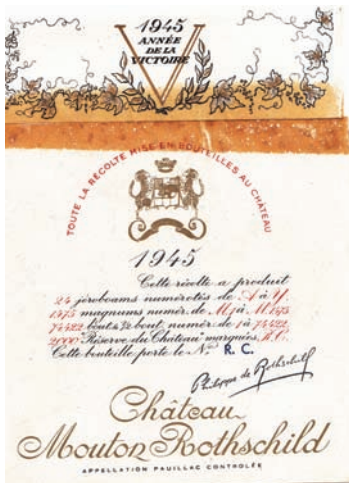 1945
ANNÉE
DE LA
VICTOIRE
V
TOUTE LA RÉCOLTE MISE EN BOUTEILLES AU CHÂTEAU
1945
Cette récolte a produit
24 jéroboams numérotés de A à Y,
1475 magnums numér. de M.1 à M.1475
74422 bout. & ½ bout. numér. de 1 à 74422,
2000 "Réserve du Château" marquées R.C.
Cette bouteille porte le Nº R. C.
Philippe de Rothschild
Château
Mouton Rothschild
APPELLATION PAUILLAC CONTRÔLÉE